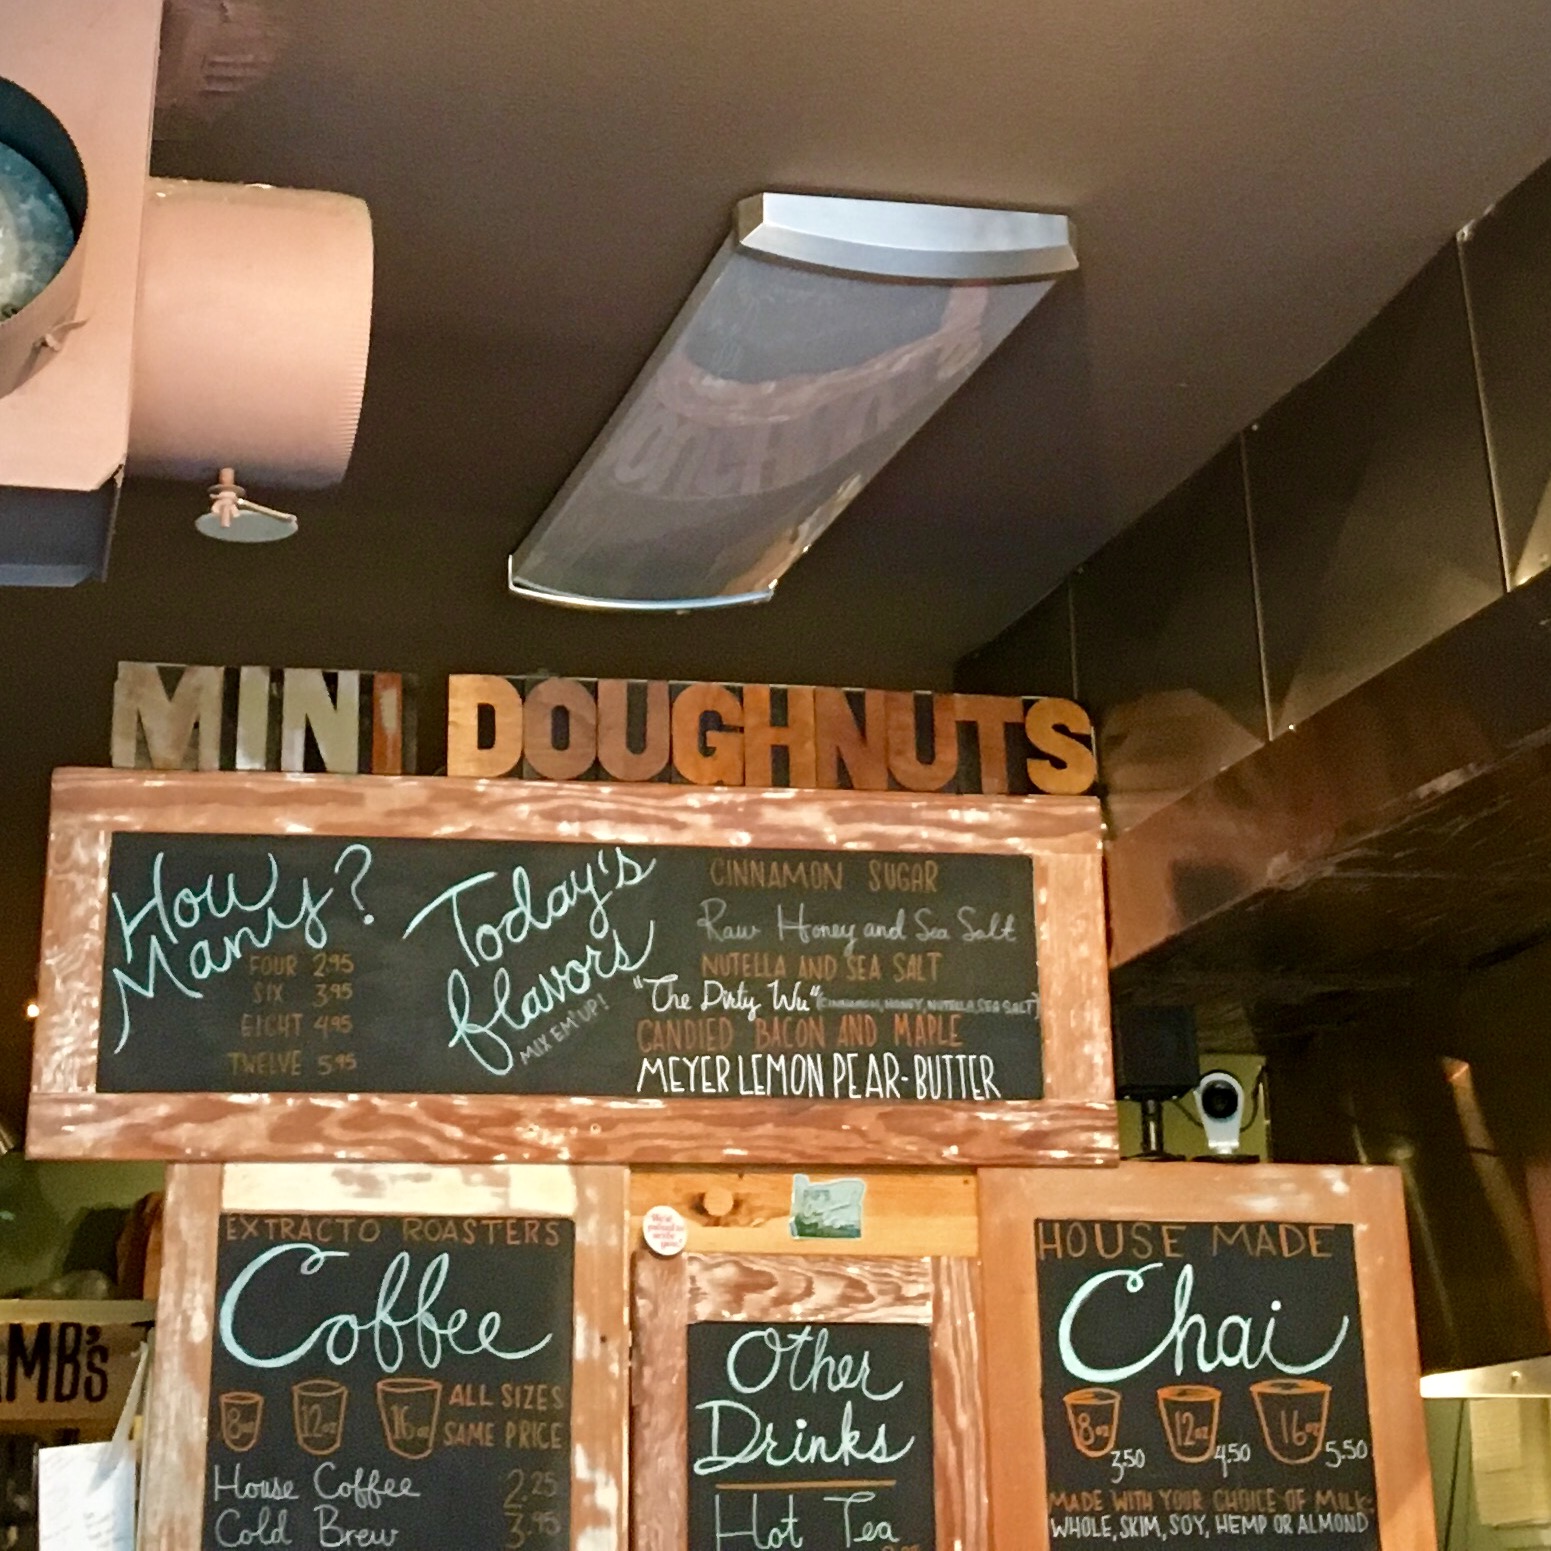 MINI DOUGHNUTS
How
Many?
FOUR 2.95
SIX 3.95
EIGHT 4.95
TWELVE 5.95
Today's
flavors
MIX EM UP!
CINNAMON SUGAR
Raw Honey and Sea Salt
NUTELLA AND SEA SALT
"The Dirty Wu" (CINNAMON, HONEY, NUTELLA, SEA SALT)
CANDIED BACON AND MAPLE
MEYER LEMON PEAR-BUTTER
EXTRACTO ROASTERS
Coffee
8oz 12oz 16oz ALL SIZES
SAME PRICE
House Coffee 2.25
Cold Brew 3.95
Other
Drinks
Hot Tea
HOUSE MADE
Chai
8oz 12oz 16oz
3.50 4.50 5.50
MADE WITH YOUR CHOICE OF MILK:
WHOLE, SKIM, SOY, HEMP OR ALMOND
MB'S